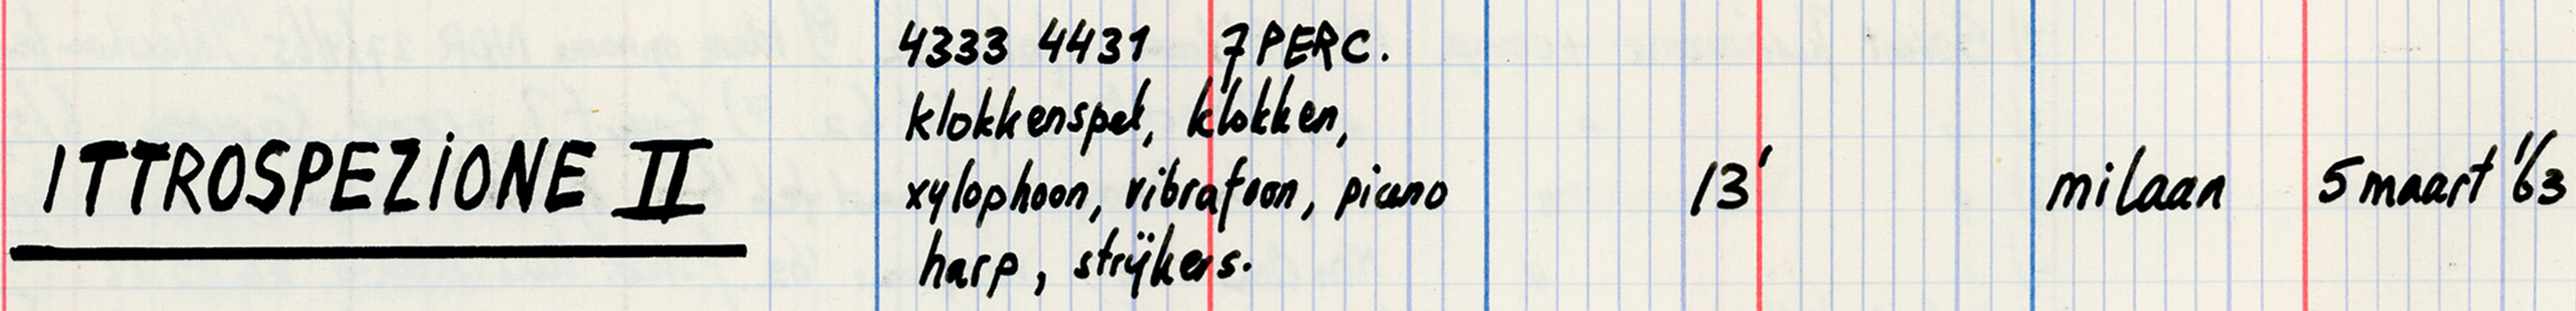 ITTROSPEZIONE II
4333 4431 7 PERC.
klokkenspel, klokken,
xylophoon, vibrafoon, piano
harp, strijkers.
13'
milaan
5 maart '63